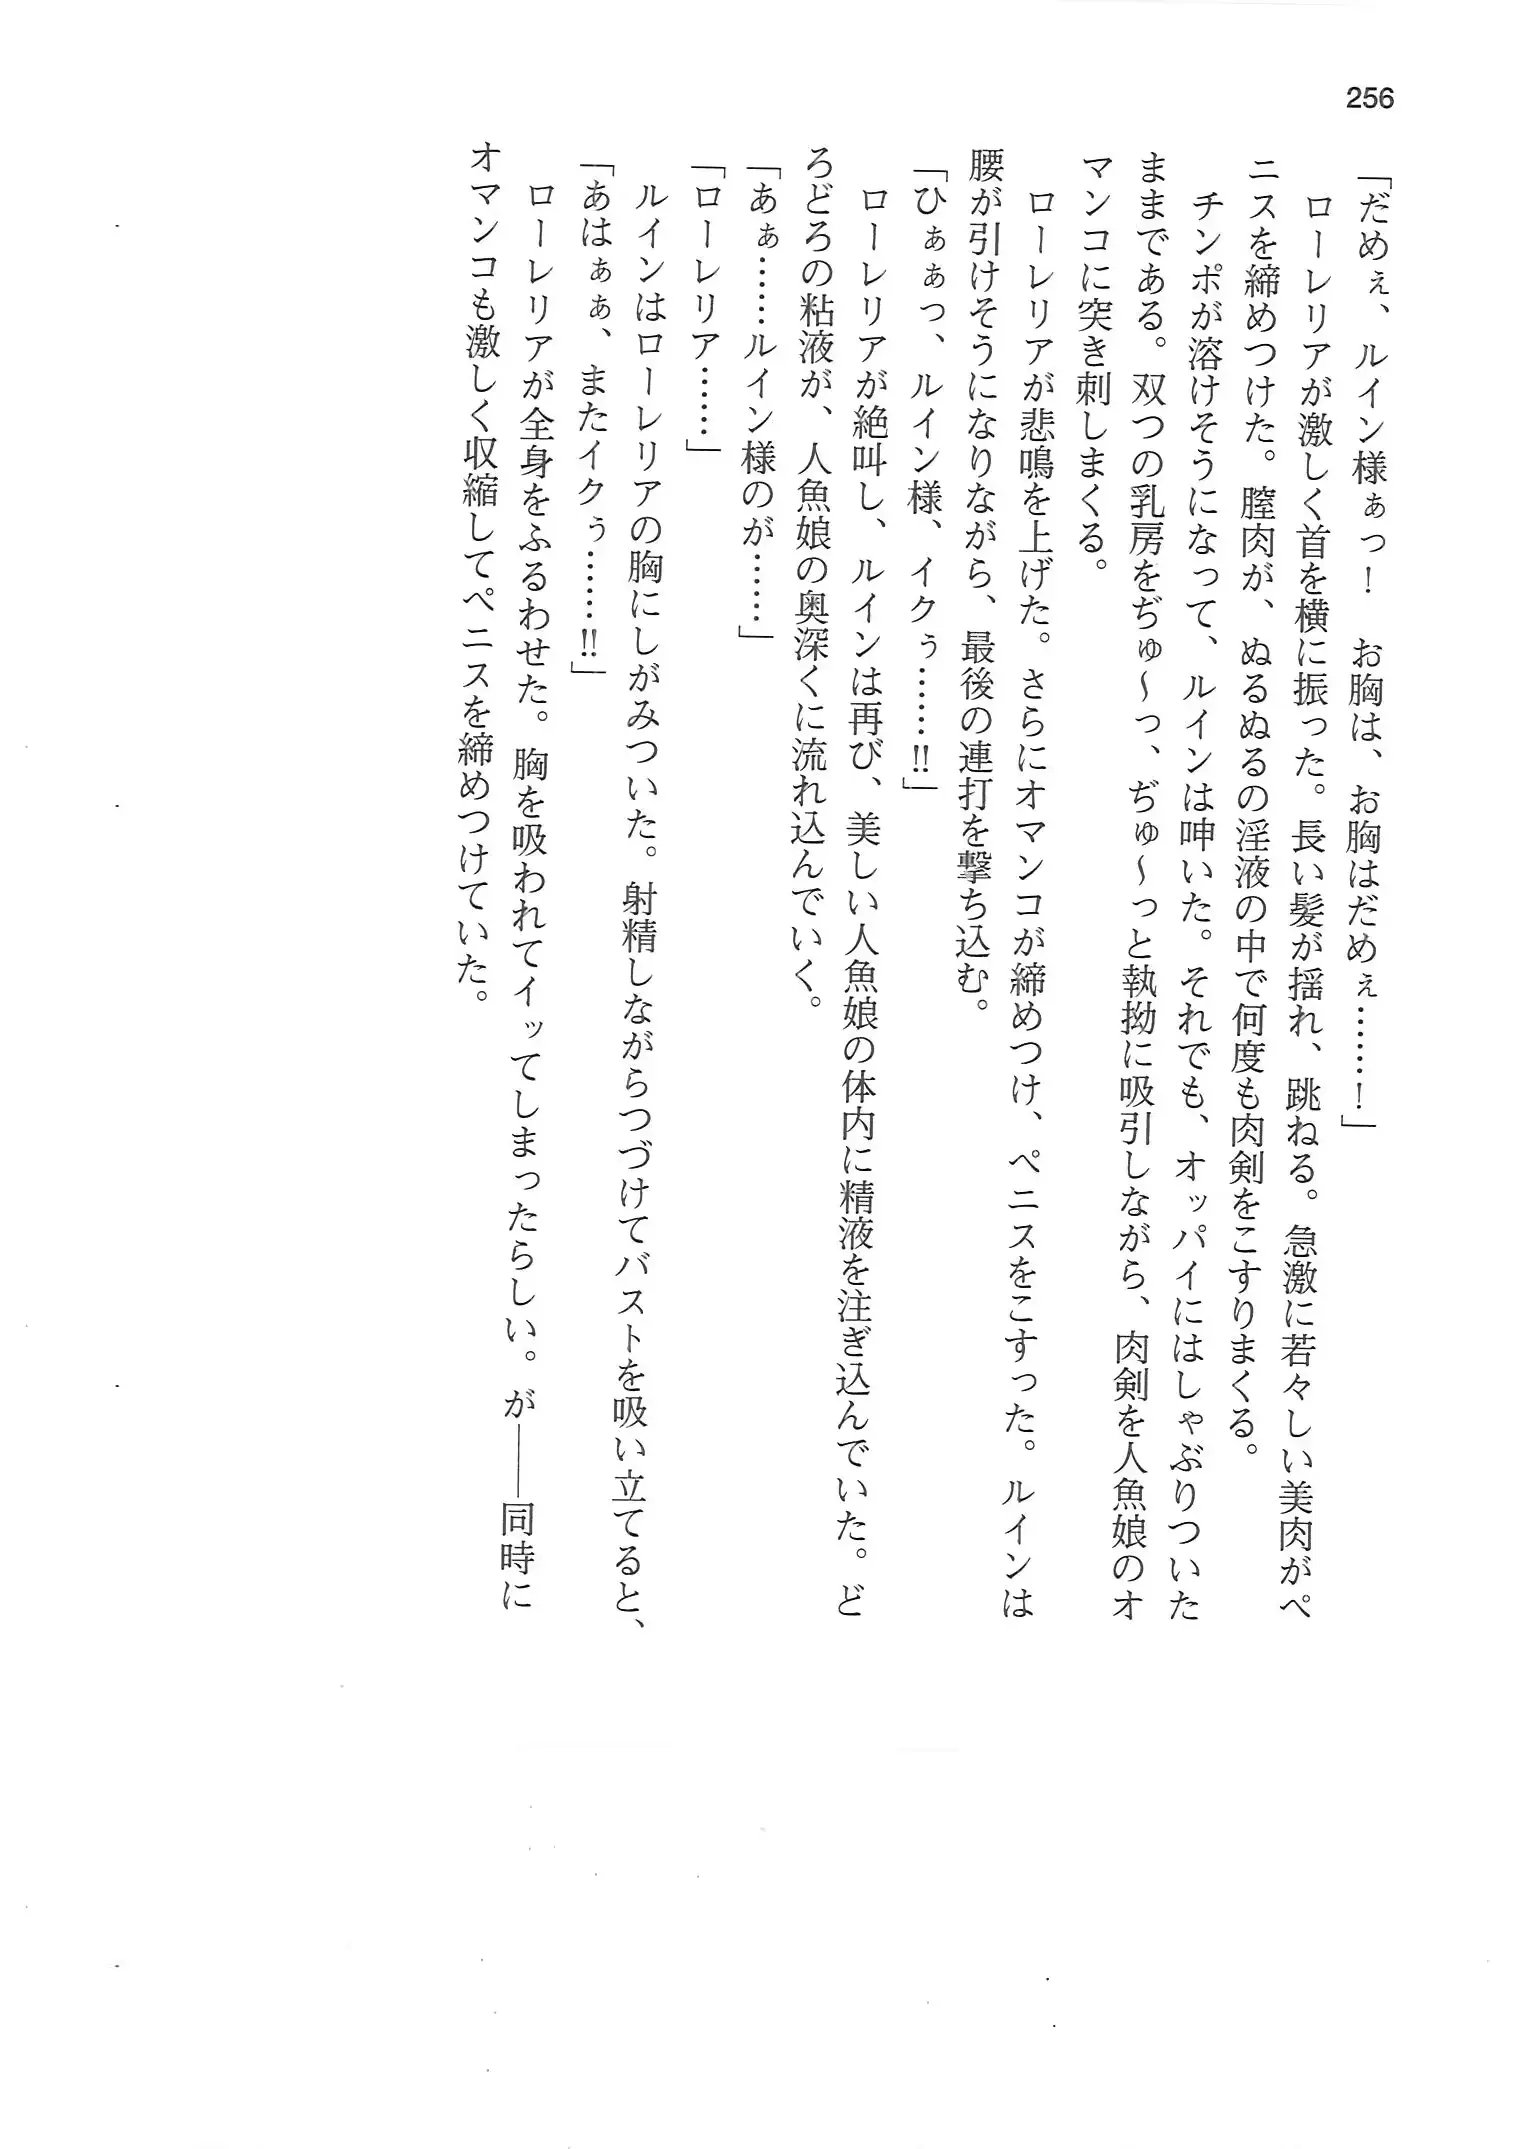 256
「だめぇ、ルイン様ぁっ！　お胸は、お胸はだめぇ……！」
　ローレリアが激しく首を横に振った。長い髪が揺れ、跳ねる。急激に若々しい美肉がペ
ニスを締めつけた。膣肉が、ぬるぬるの淫液の中で何度も肉剣をこすりまくる。
　チンポが溶けそうになって、ルインは呻いた。それでも、オッパイにはしゃぶりついた
ままである。双つの乳房をぢゅ〜っ、ぢゅ〜っと執拗に吸引しながら、肉剣を人魚娘のオ
マンコに突き刺しまくる。
　ローレリアが悲鳴を上げた。さらにオマンコが締めつけ、ペニスをこすった。ルインは
腰が引けそうになりながら、最後の連打を撃ち込む。
「ひぁぁっ、ルイン様、イクぅ……‼」
　ローレリアが絶叫し、ルインは再び、美しい人魚娘の体内に精液を注ぎ込んでいた。ど
ろどろの粘液が、人魚娘の奥深くに流れ込んでいく。
「あぁ……ルイン様のが……」
「ローレリア……」
　ルインはローレリアの胸にしがみついた。射精しながらつづけてバストを吸い立てると、
「あはぁぁ、またイクぅ……‼」
　ローレリアが全身をふるわせた。胸を吸われてイッてしまったらしい。が――同時に
オマンコも激しく収縮してペニスを締めつけていた。